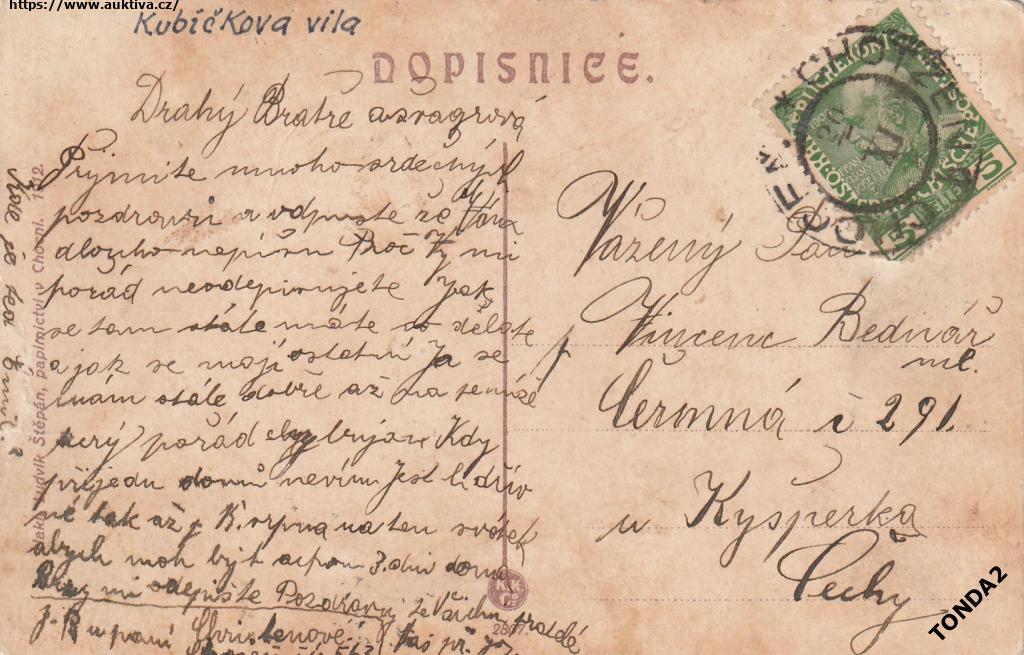 https://www.auktiva.cz/
Kubíčkova vila
DOPISNICE.
Drahý Bratře a švagrová
Prijmite mnoho srdečných
pozdravů a odpuste že
dlouho nepíšu Proč Vy mi
pořád neodepisujete Jak
se tam stále máte co děláte
a jak se mají ostatní Ja se
mám stále dobře až na
pořád Kdy
přijedu domů nevím Jestli dřív
ně tak až 15. srpna na ten svátek
abych moh být aspon 3. dni doma
Brzy mi odepište Pozdravuj
z. B u paní
Ludvík Štěpán, papírnictví v Chocni. 1912.
2807
CHOTZEN
CHOCEŇ
XI
5
Vážený Pan
Vincenc Bednář
ml.
Čermná č 291.
u Kyšperka
Čechy
TONDA2